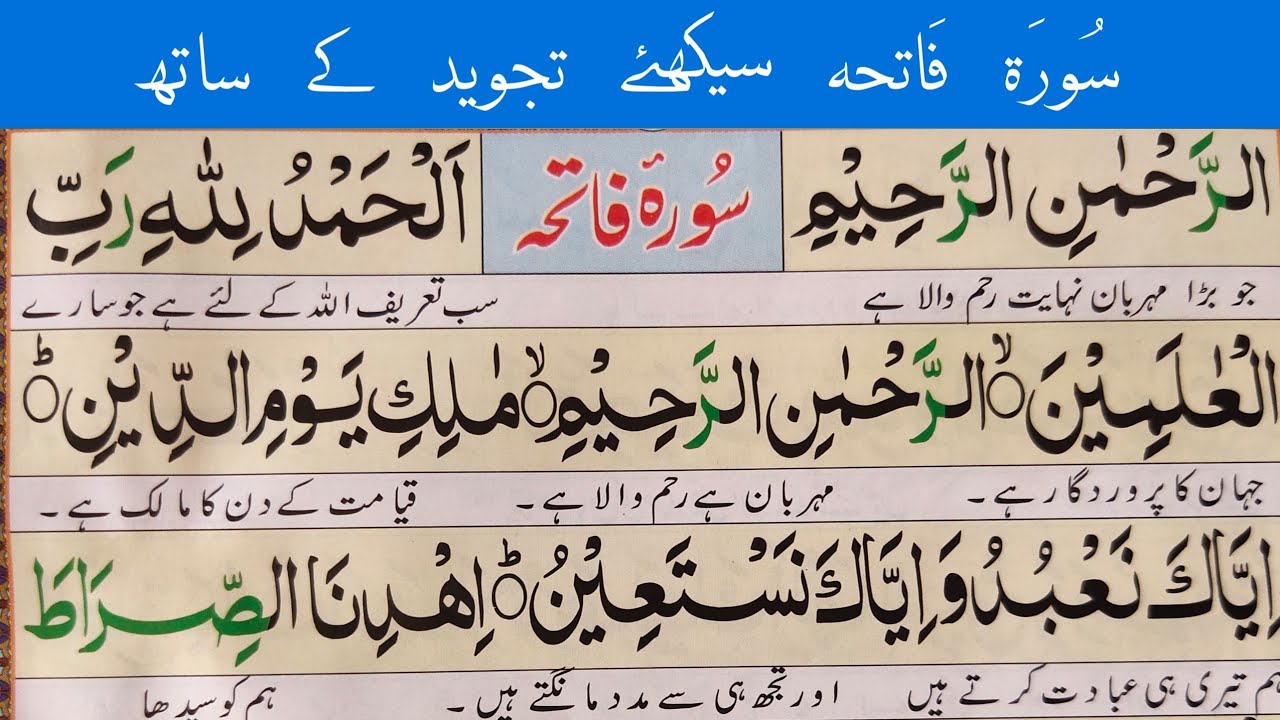 سُورَۃ فَاتحہ سیکھئے تجوید کے ساتھ
الرَّحْمٰنِ الرَّحِيْمِ سُورۂ فاتحہ اَلْحَمْدُ لِلّٰهِ رَبِّ
جو بڑا مہربان نہایت رحم والا ہے سب تعریف اللہ کے لئے ہے جو سارے
الْعٰلَمِيْنَ ۙ الرَّحْمٰنِ الرَّحِيْمِ ۙ مٰلِكِ يَوْمِ الدِّيْنِ ؕ
جہان کا پروردگار ہے۔ مہربان ہے رحم والا ہے۔ قیامت کے دن کا مالک ہے۔
اِيَّاكَ نَعْبُدُ وَ اِيَّاكَ نَسْتَعِيْنُ ؕ اِهْدِنَا الصِّرَاطَ
ہم تیری ہی عبادت کرتے ہیں اور تجھ ہی سے مدد مانگتے ہیں۔ ہم کو سیدھا